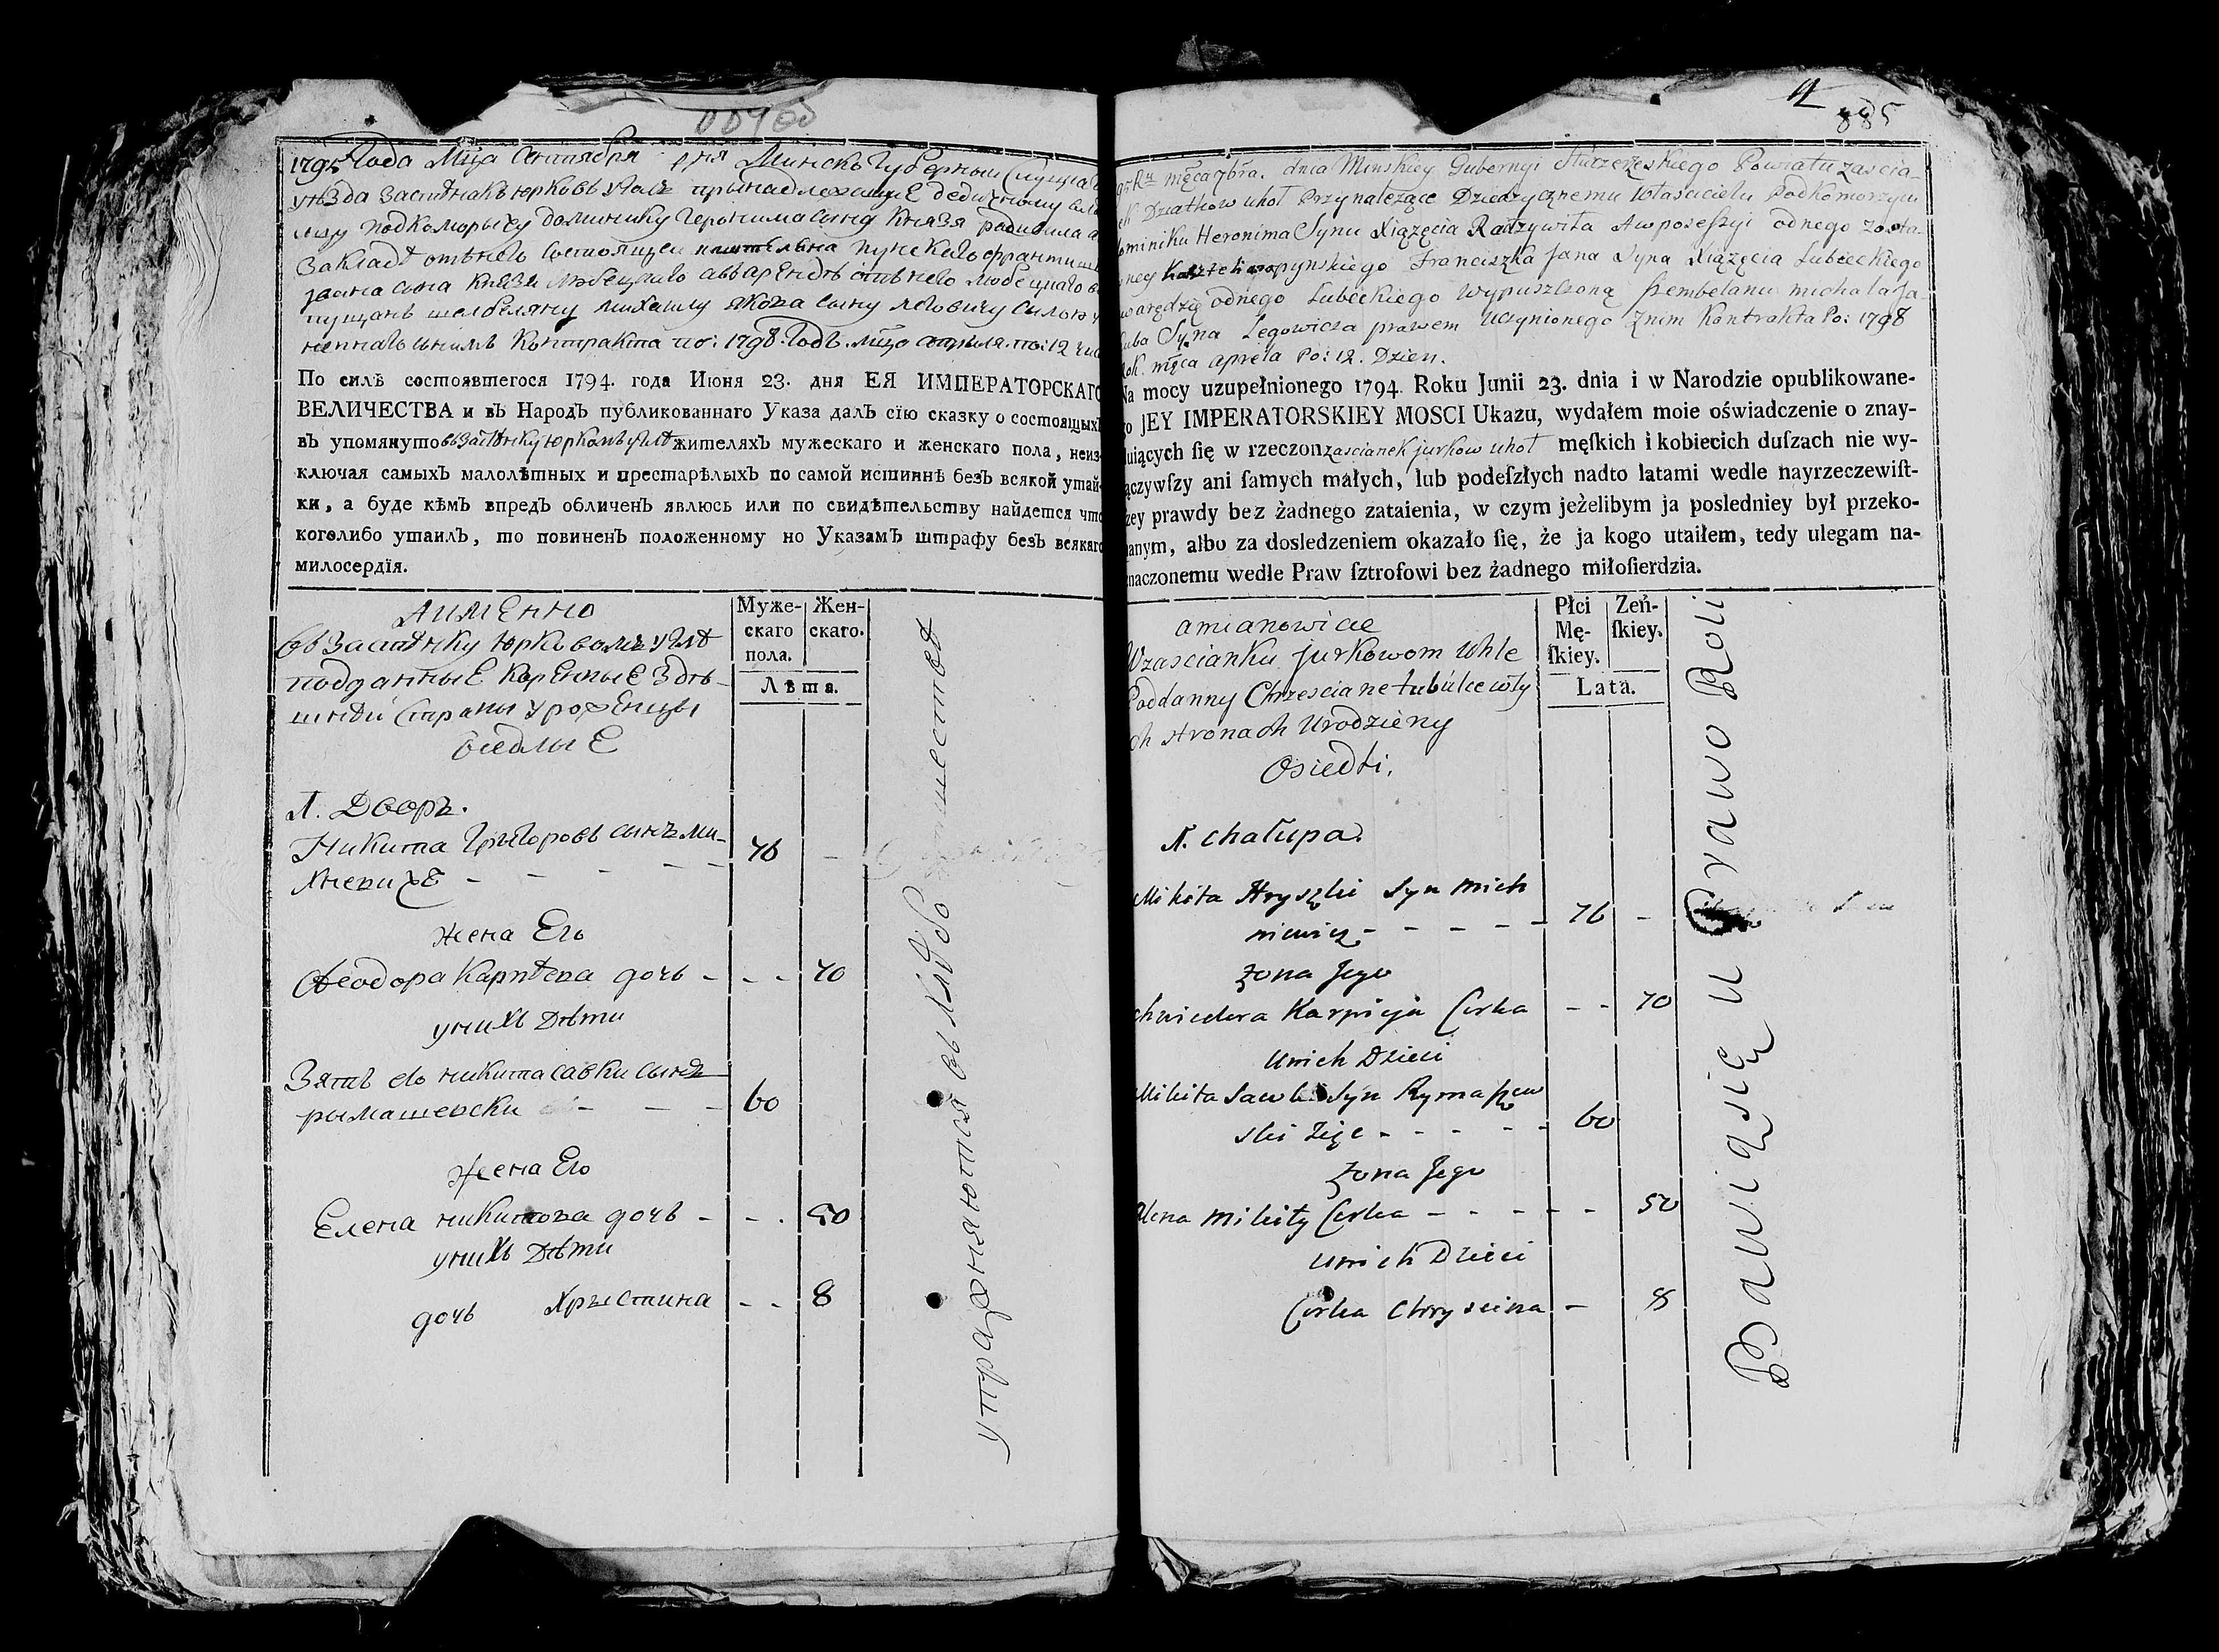 00400
1795 Года Мца Сентября дня Минской Губернии Слуцкаго
уѣзда застѣнакъ юрковъ уголъ принадлежащие дедичному
подкоморыху доминику Геронима сына Князя радивила
закладѣ отъ него состоящеи пинскаго францишка
яана сына Князя любецкаго авъ арендѣ отъ него любецкаго
пущанъ шелбеляну михаилу якова сыну леговичу силою
контракта по: 1798. Годъ мцо апреля по: 12
По силѣ состоявшегося 1794. года Июня 23. дня ЕЯ ИМПЕРАТОРСКАГО
ВЕЛИЧЕСТВА и въ Народъ публикованнаго Указа далъ сїю сказку о состоящыхъ
въ упомянутовъзастѣнку юрковъ углѣ жителяхъ мужескаго и женскаго пола, неиз-
ключая самыхъ малолѣтныхъ и престарѣлыхъ по самой истиннѣ безъ всякой утай-
ки, а буде кѣмъ впредъ обличенъ явлюсь или по свидѣтельству найдется что
коголибо утаилъ, то повиненъ положенному по Указамъ штрафу безъ всякаго
милосердїя.
Муже-скаго пола. Жен-скаго.
Лѣта.
Аименно
Въ застѣнку юрковомъ углѣ
подданные коренные здѣ-
шнѣи Страны уроженцы
оседлые
1. Дворъ.
Никита Грыгоровъ сынъ ми-
хневиче - - - - 76 -
жена Его
Феодора карпѣева дочь - - - 70
унихъ Дѣти
Зять его никита савки сынъ
рымашевски - - - 60
жена Его
Елена никитова дочь - - - 50
унихъ Дѣти
дочь Хрыстина - - 8
упражняются въ хлѣбопашествѣ
885
95 Ru męca 7bra. dnia Minskiey Gubernyi Nieczezeskiego Powiatu zascia-
Dziatkow uhoł Przynalezące Dziedzycznemu Włascicielu Podkomorzym
ominiku Heronima Synu Xiązęcia Radzywiła Awposeszyi odnego zosta-
ney pynskiego Franciszka Jana Syna Xiązęcia Lubeckiego
warędzię odnego Lubeckiego wypuszczoną szembelanu michała Ja-
kuba Syna Legowicza prawem uczynionego znim kontrakta Po: 1798
Rok męca aprela Po: 12. Dzien.
Na mocy uzupełnionego 1794. Roku Junii 23. dnia i w Narodzie opublikowane-
go JEY IMPERATORSKIEY MOSCI Ukazu, wydałem moie oświadczenie o znay-
duiących ſię w rzeczonzascianek jurkow uhoł męſkich i kobiecich duſzach nie wy-
łączywſzy ani ſamych małych, lub podeſzłych nadto latami wedle nayrzeczewiſt-
szey prawdy bez żadnego zataienia, w czym jeżelibym ja posledniey był przeko-
nanym, albo za dosledzeniem okazało ſię, że ja kogo utaiłem, tedy ulegam na-
znaczonemu wedle Praw ſztrofowi bez żadnego miłoſierdzia.
Płci Mę-ſkiey. Zeń-ſkiey.
Lata.
amianowicie
Wzascianku jurkowom Uhle
Poddanny Chrzesciane tubulcewty
ch stronach Urodzieny
Osiedli.
1. chałupa
Mikita Hryszki Syn Mich
niewicz - - - - - 76 -
zona Jego
Chwiedora Karpieja Corka - - 70
Unich Dzieci
Mikita Sawki Syn Rymaszew
ski Zięc - - - - - 60
zona Jego
Alena Mikity Corka - - - - - 50
Unich Dzieci
Corka Chryscina - 8
Bawiąsię u Prawo Roli